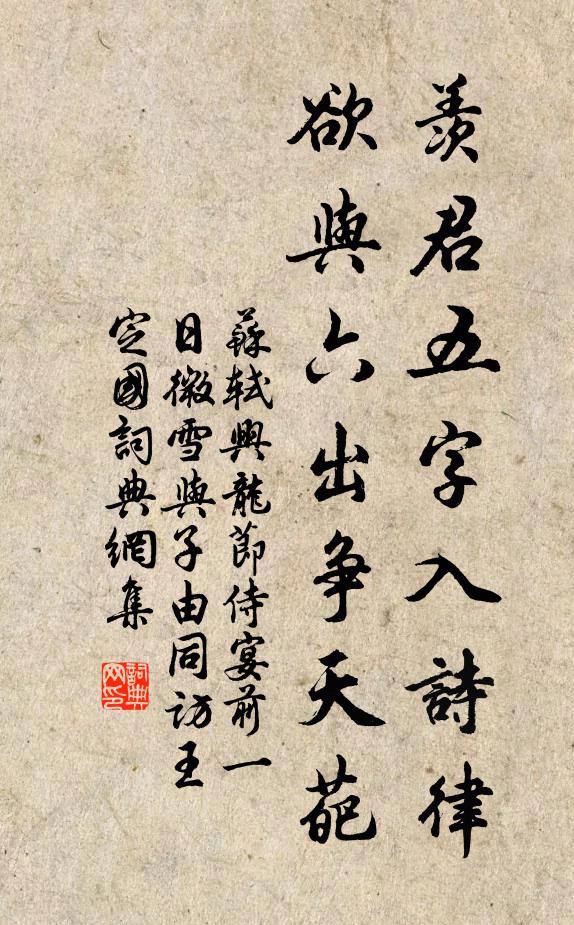 羨君五字入詩律
欲與六出争天葩
蘇軾興龍節侍宴前一
日微雪與子由同訪王
定國詞典網集
詞典
网印